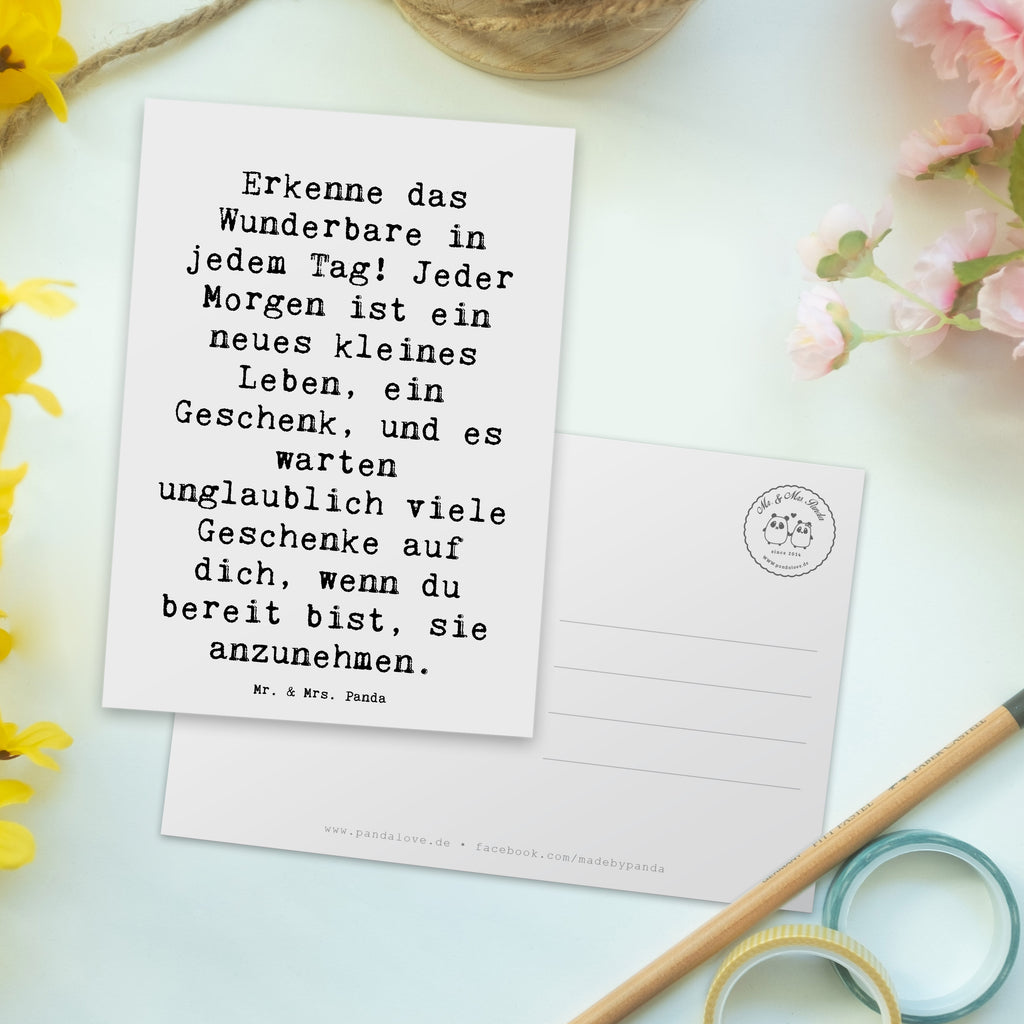 Erkenne das
Wunderbare in
jedem Tag! Jeder
Morgen ist ein
neues kleines
Leben, ein
Geschenk, und es
warten
unglaublich viele
Geschenke auf
dich, wenn du
bereit bist, sie
anzunehmen.
Mr. & Mrs. Panda
Mr. & Mrs. Panda
since 2014
www.pandalove.de
www.pandalove.de • facebook.com/madebypanda
PITT PASTEL
FABER-CASTELL